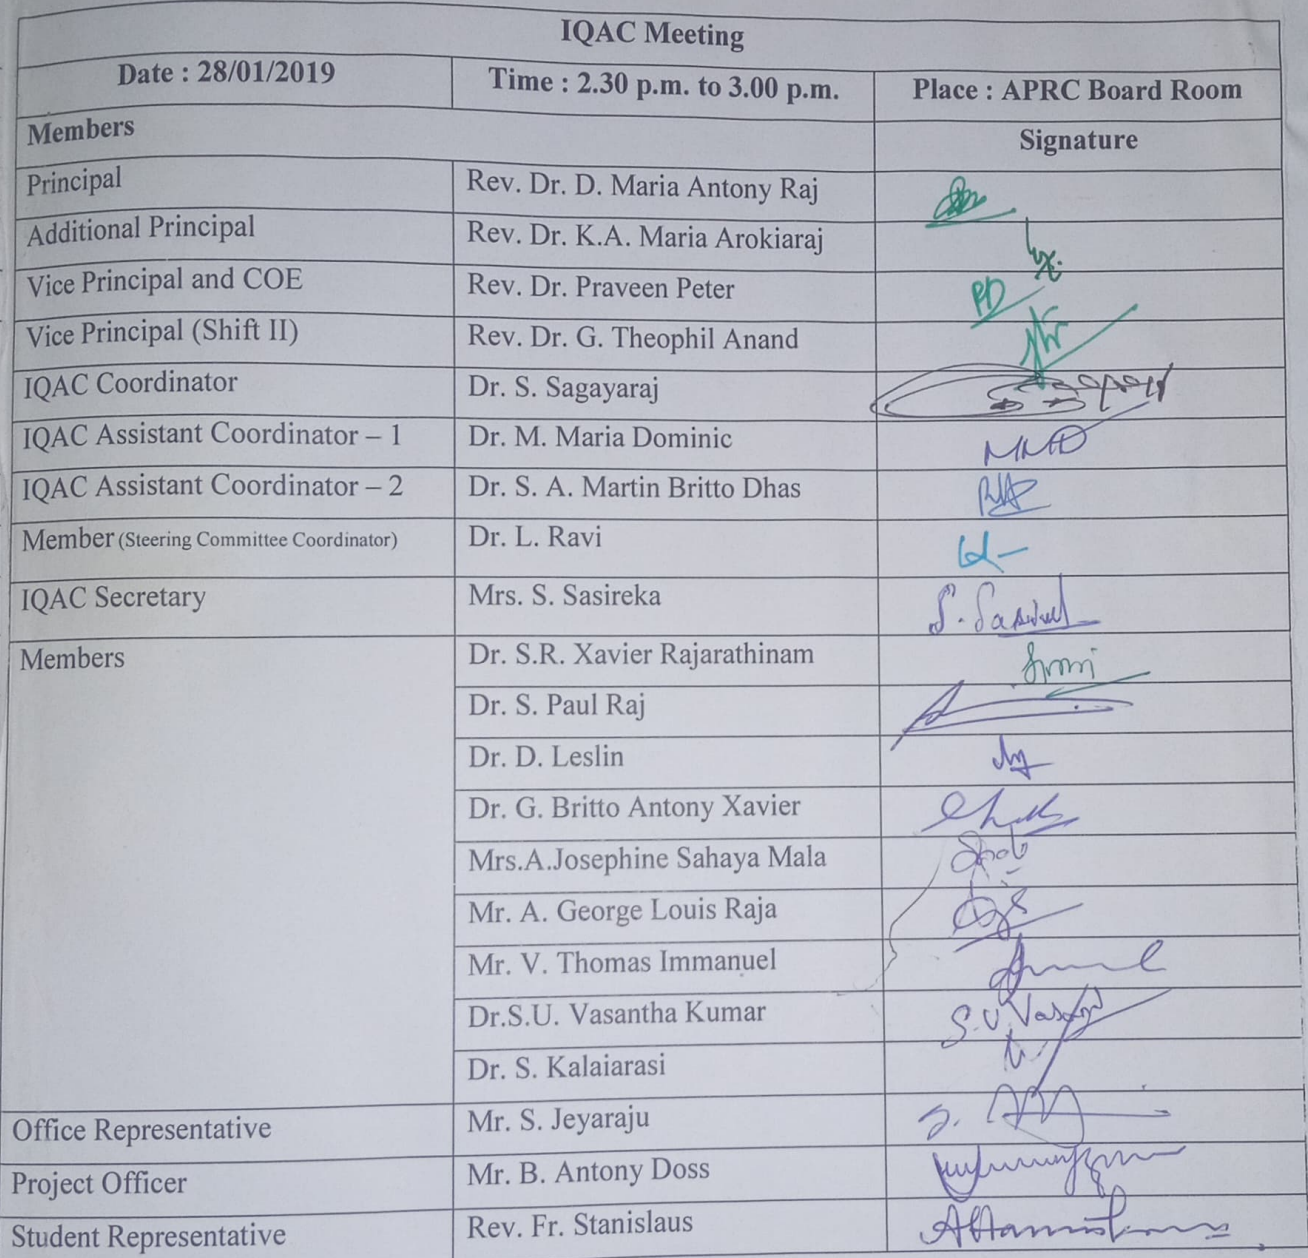 IQAC Meeting
Date : 28/01/2019 Time : 2.30 p.m. to 3.00 p.m. Place : APRC Board Room
Members Signature
Principal Rev. Dr. D. Maria Antony Raj
Additional Principal Rev. Dr. K.A. Maria Arokiaraj
Vice Principal and COE Rev. Dr. Praveen Peter
Vice Principal (Shift II) Rev. Dr. G. Theophil Anand
IQAC Coordinator Dr. S. Sagayaraj
IQAC Assistant Coordinator – 1 Dr. M. Maria Dominic
IQAC Assistant Coordinator – 2 Dr. S. A. Martin Britto Dhas
Member (Steering Committee Coordinator) Dr. L. Ravi
IQAC Secretary Mrs. S. Sasireka
Members Dr. S.R. Xavier Rajarathinam
Dr. S. Paul Raj
Dr. D. Leslin
Dr. G. Britto Antony Xavier
Mrs.A.Josephine Sahaya Mala
Mr. A. George Louis Raja
Mr. V. Thomas Immanuel
Dr.S.U. Vasantha Kumar
Dr. S. Kalaiarasi
Office Representative Mr. S. Jeyaraju
Project Officer Mr. B. Antony Doss
Student Representative Rev. Fr. Stanislaus